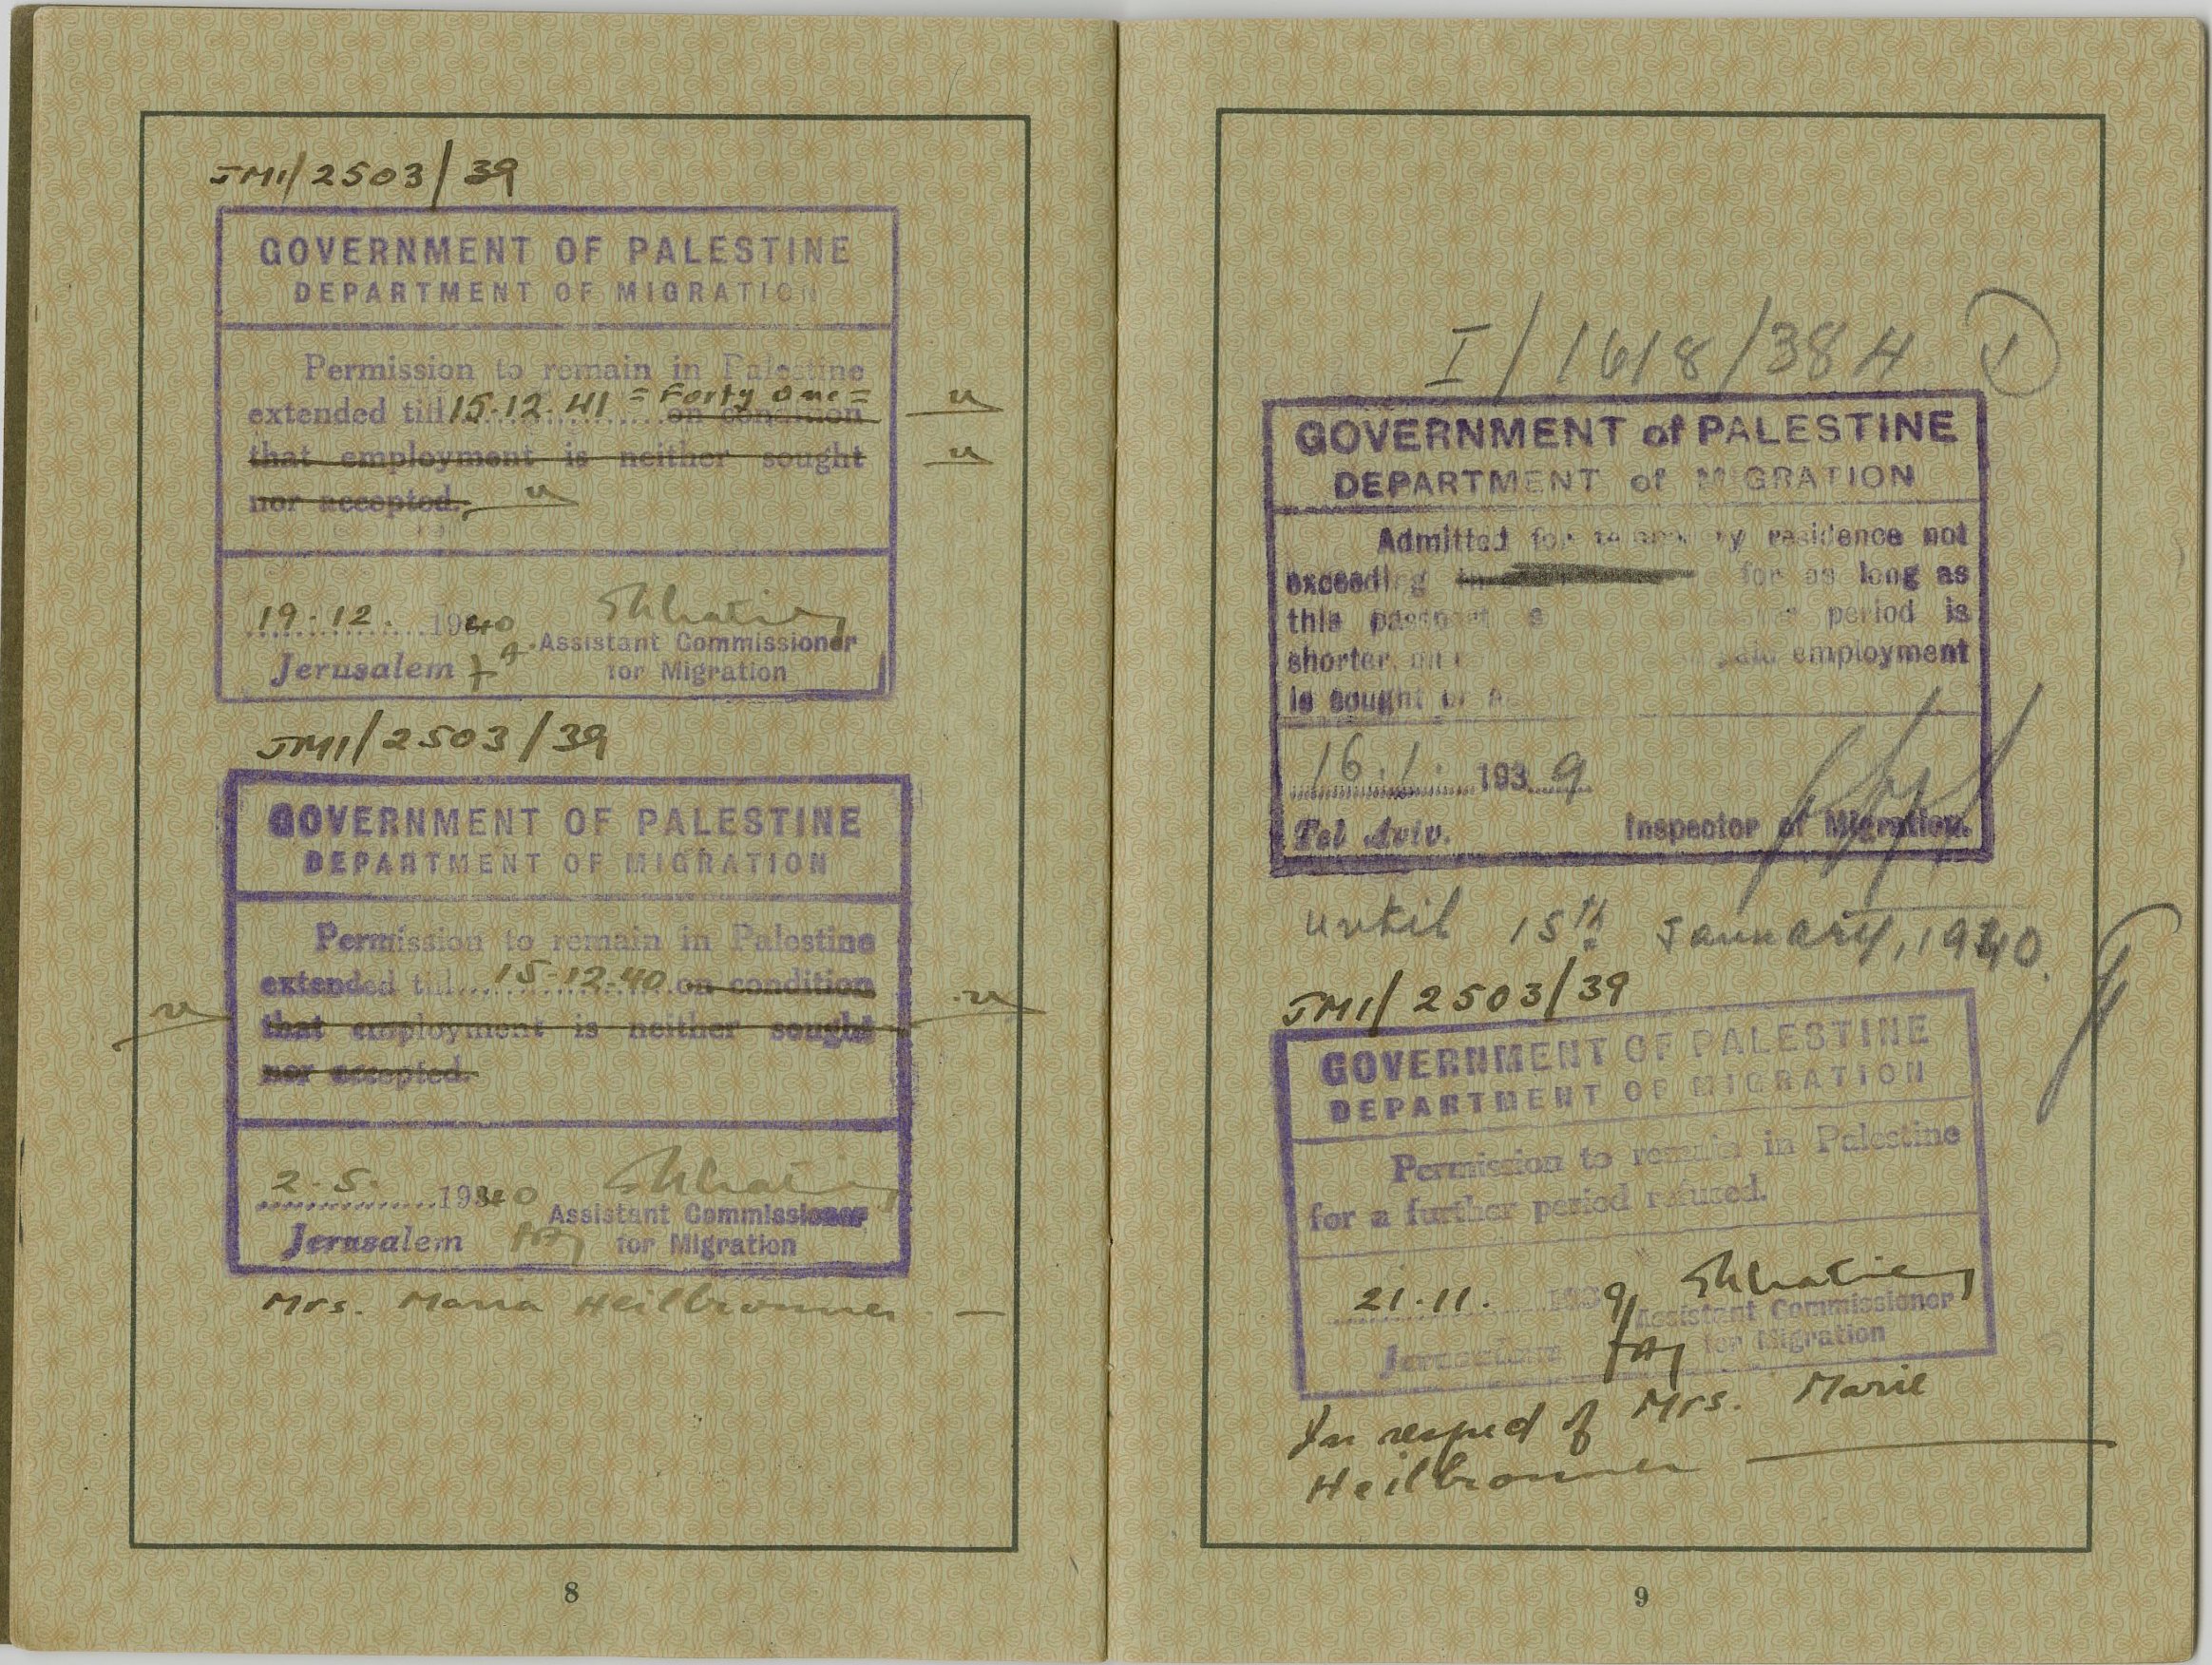 JMI/2503/39
GOVERNMENT OF PALESTINE
DEPARTMENT OF MIGRATION
Permission to remain in Palestine
extended till 15.12.41 = Forty One = on condition
that employment is neither sought
nor accepted.
19.12. 1940
Assistant Commissioner
Jerusalem
for Migration
JMI/2503/39
GOVERNMENT OF PALESTINE
DEPARTMENT OF MIGRATION
Permission to remain in Palestine
extended till 15-12-40 on condition
that employment is neither sought
nor accepted.
2.5. 1940
Assistant Commissioner
Jerusalem
for Migration
Mrs. Maria Heilbronner
8
I/1618/384 1
GOVERNMENT of PALESTINE
DEPARTMENT of MIGRATION
Admitted for temporary residence not
exceeding for as long as
this passport period is
shorter, paid employment
is sought or
16.1. 1939
Tel Aviv. Inspector of Migration.
until 15th January, 1940.
JMI/2503/39
GOVERNMENT OF PALESTINE
DEPARTMENT OF MIGRATION
Permission to remain in Palestine
for a further period refused.
21.11. 1939
Assistant Commissioner
Jerusalem
for Migration
In respect of Mrs. Marie
Heilbronner
9